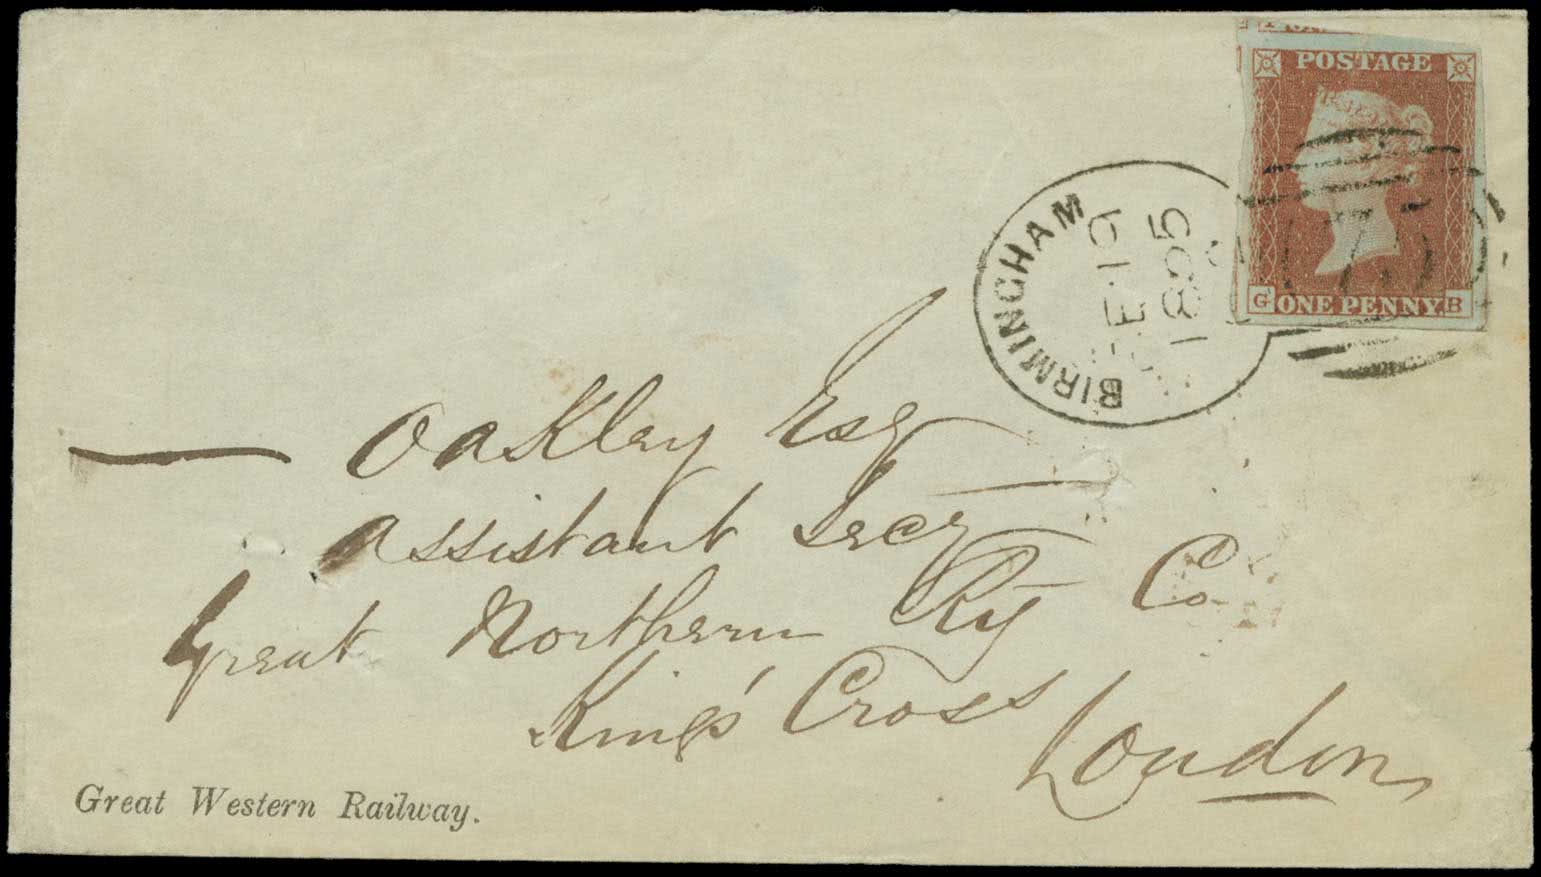 POSTAGE
ONE PENNY.
G B
BIRMINGHAM
1855
— Oakley Esq
Assistant Secy
Great Northern Ry Co
King's Cross
London
Great Western Railway.